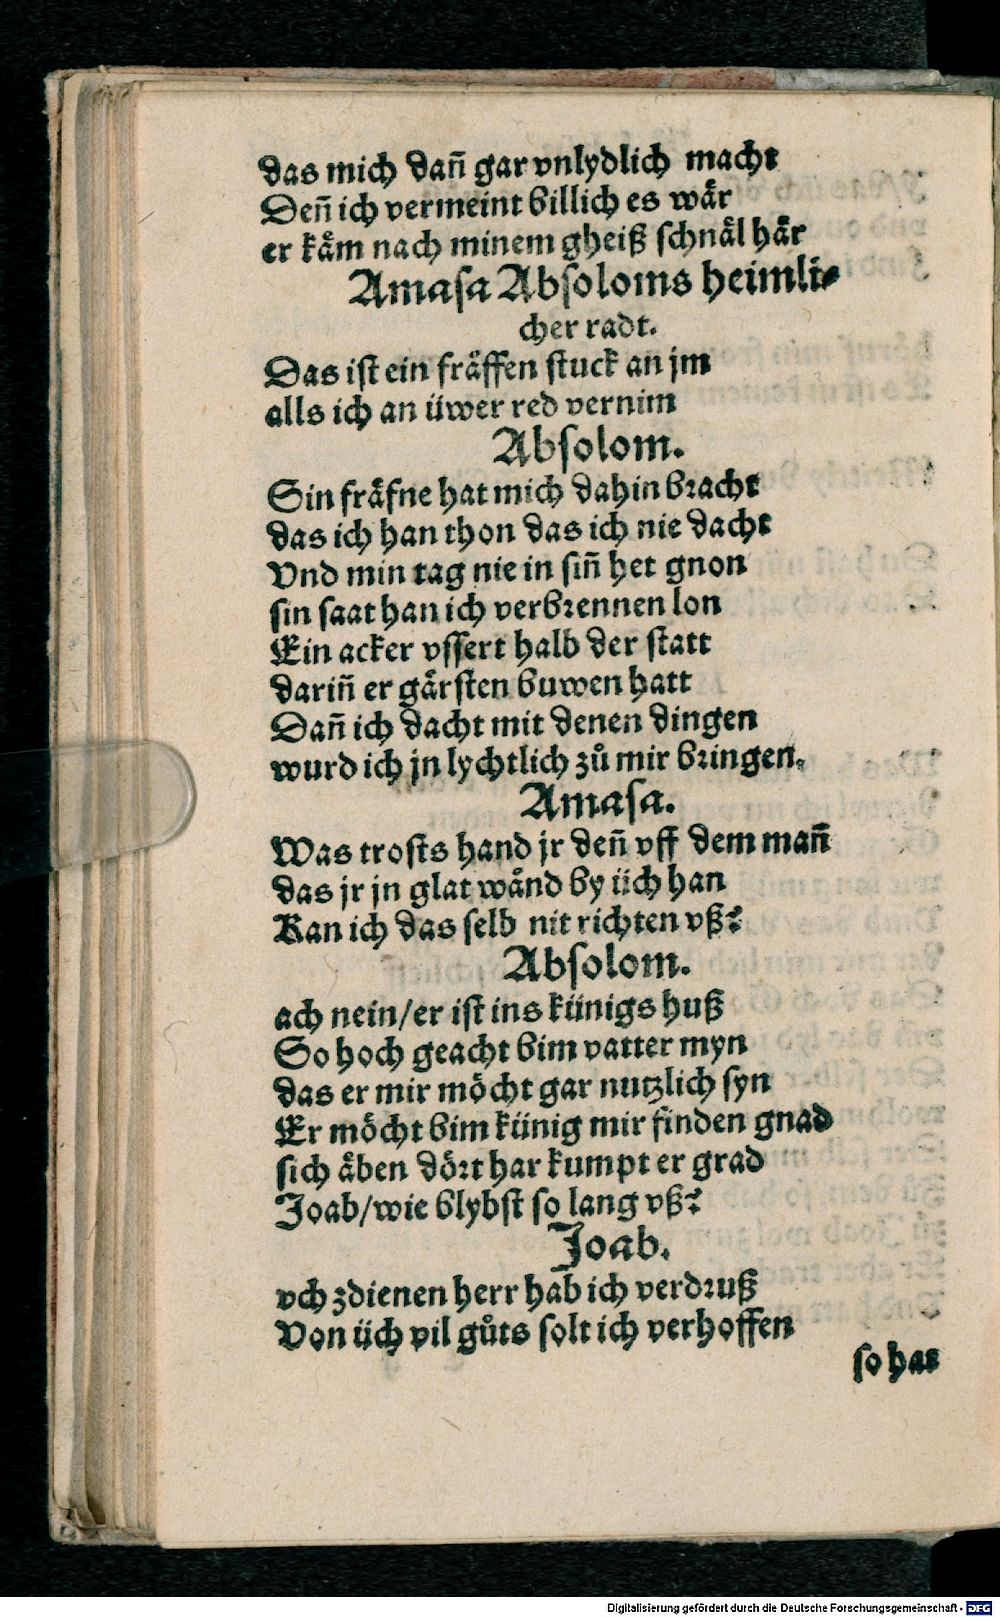 das mich dañ gar vnlydlich macht
Deñ ich vermeint billich es wår
er kåm nach minem gheiß schnål hår
Amasa Absoloms heimli⸗
cher radt.
Das ist ein fråffen stuck an jm
alls ich an üwer red vernim
Absolom.
Sin fråfne hat mich dahin bracht
das ich han thon das ich nie dacht
Vnd min tag nie in siñ het gnon
sin saat han ich verbrennen lon
Ein acker vssert halb der statt
dariñ er gårsten buwen hatt
Dañ ich dacht mit denen dingen
wurd ich jn lychtlich zů mir bringen.
Amasa.
Was trosts hand jr deñ vff dem mañ
das jr jn glat wånd by üch han
Kan ich das selb nit richten vß?
Absolom.
ach nein/er ist ins künigs huß
So hoch geacht bim vatter myn
das er mir möcht gar nutzlich syn
Er möcht bim künig mir finden gnad
sich åben dört har kumpt er grad
Joab/wie blybst so lang vß?
Joab.
vch zdienen herr hab ich verdruß
Von üch vil gůts solt ich verhoffen
so hat
Digitalisierung gefördert durch die Deutsche Forschungsgemeinschaft - DFG